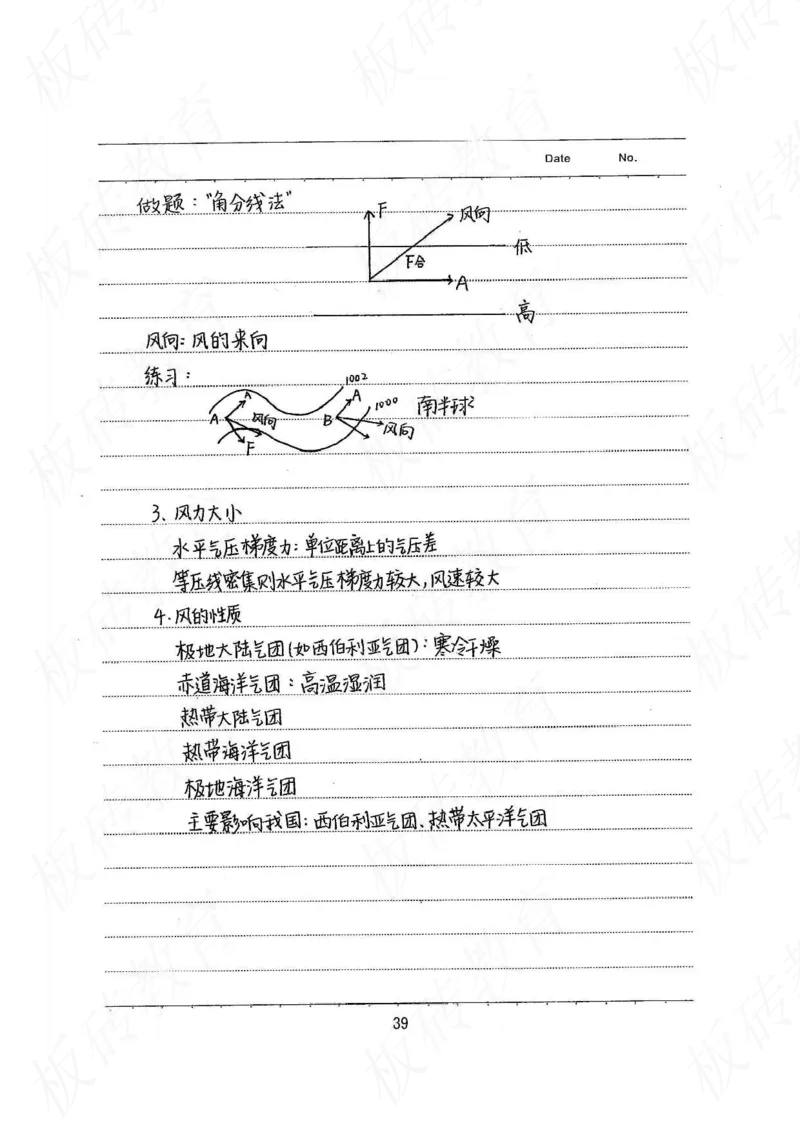 Date No.
做题："角分线法"
F
风向
低
F合
A
高
风向：风的来向
练习：
1002
A
A
1000
南半球
A
风向
B
风向
F
3、风力大小
水平气压梯度力：单位距离上的气压差
等压线密集则水平气压梯度力较大，风速较大
4.风的性质
极地大陆气团（如西伯利亚气团）：寒冷干燥
赤道海洋气团：高温湿润
热带大陆气团
热带海洋气团
极地海洋气团
主要影响我国：西伯利亚气团、热带太平洋气团
39
板砖教育